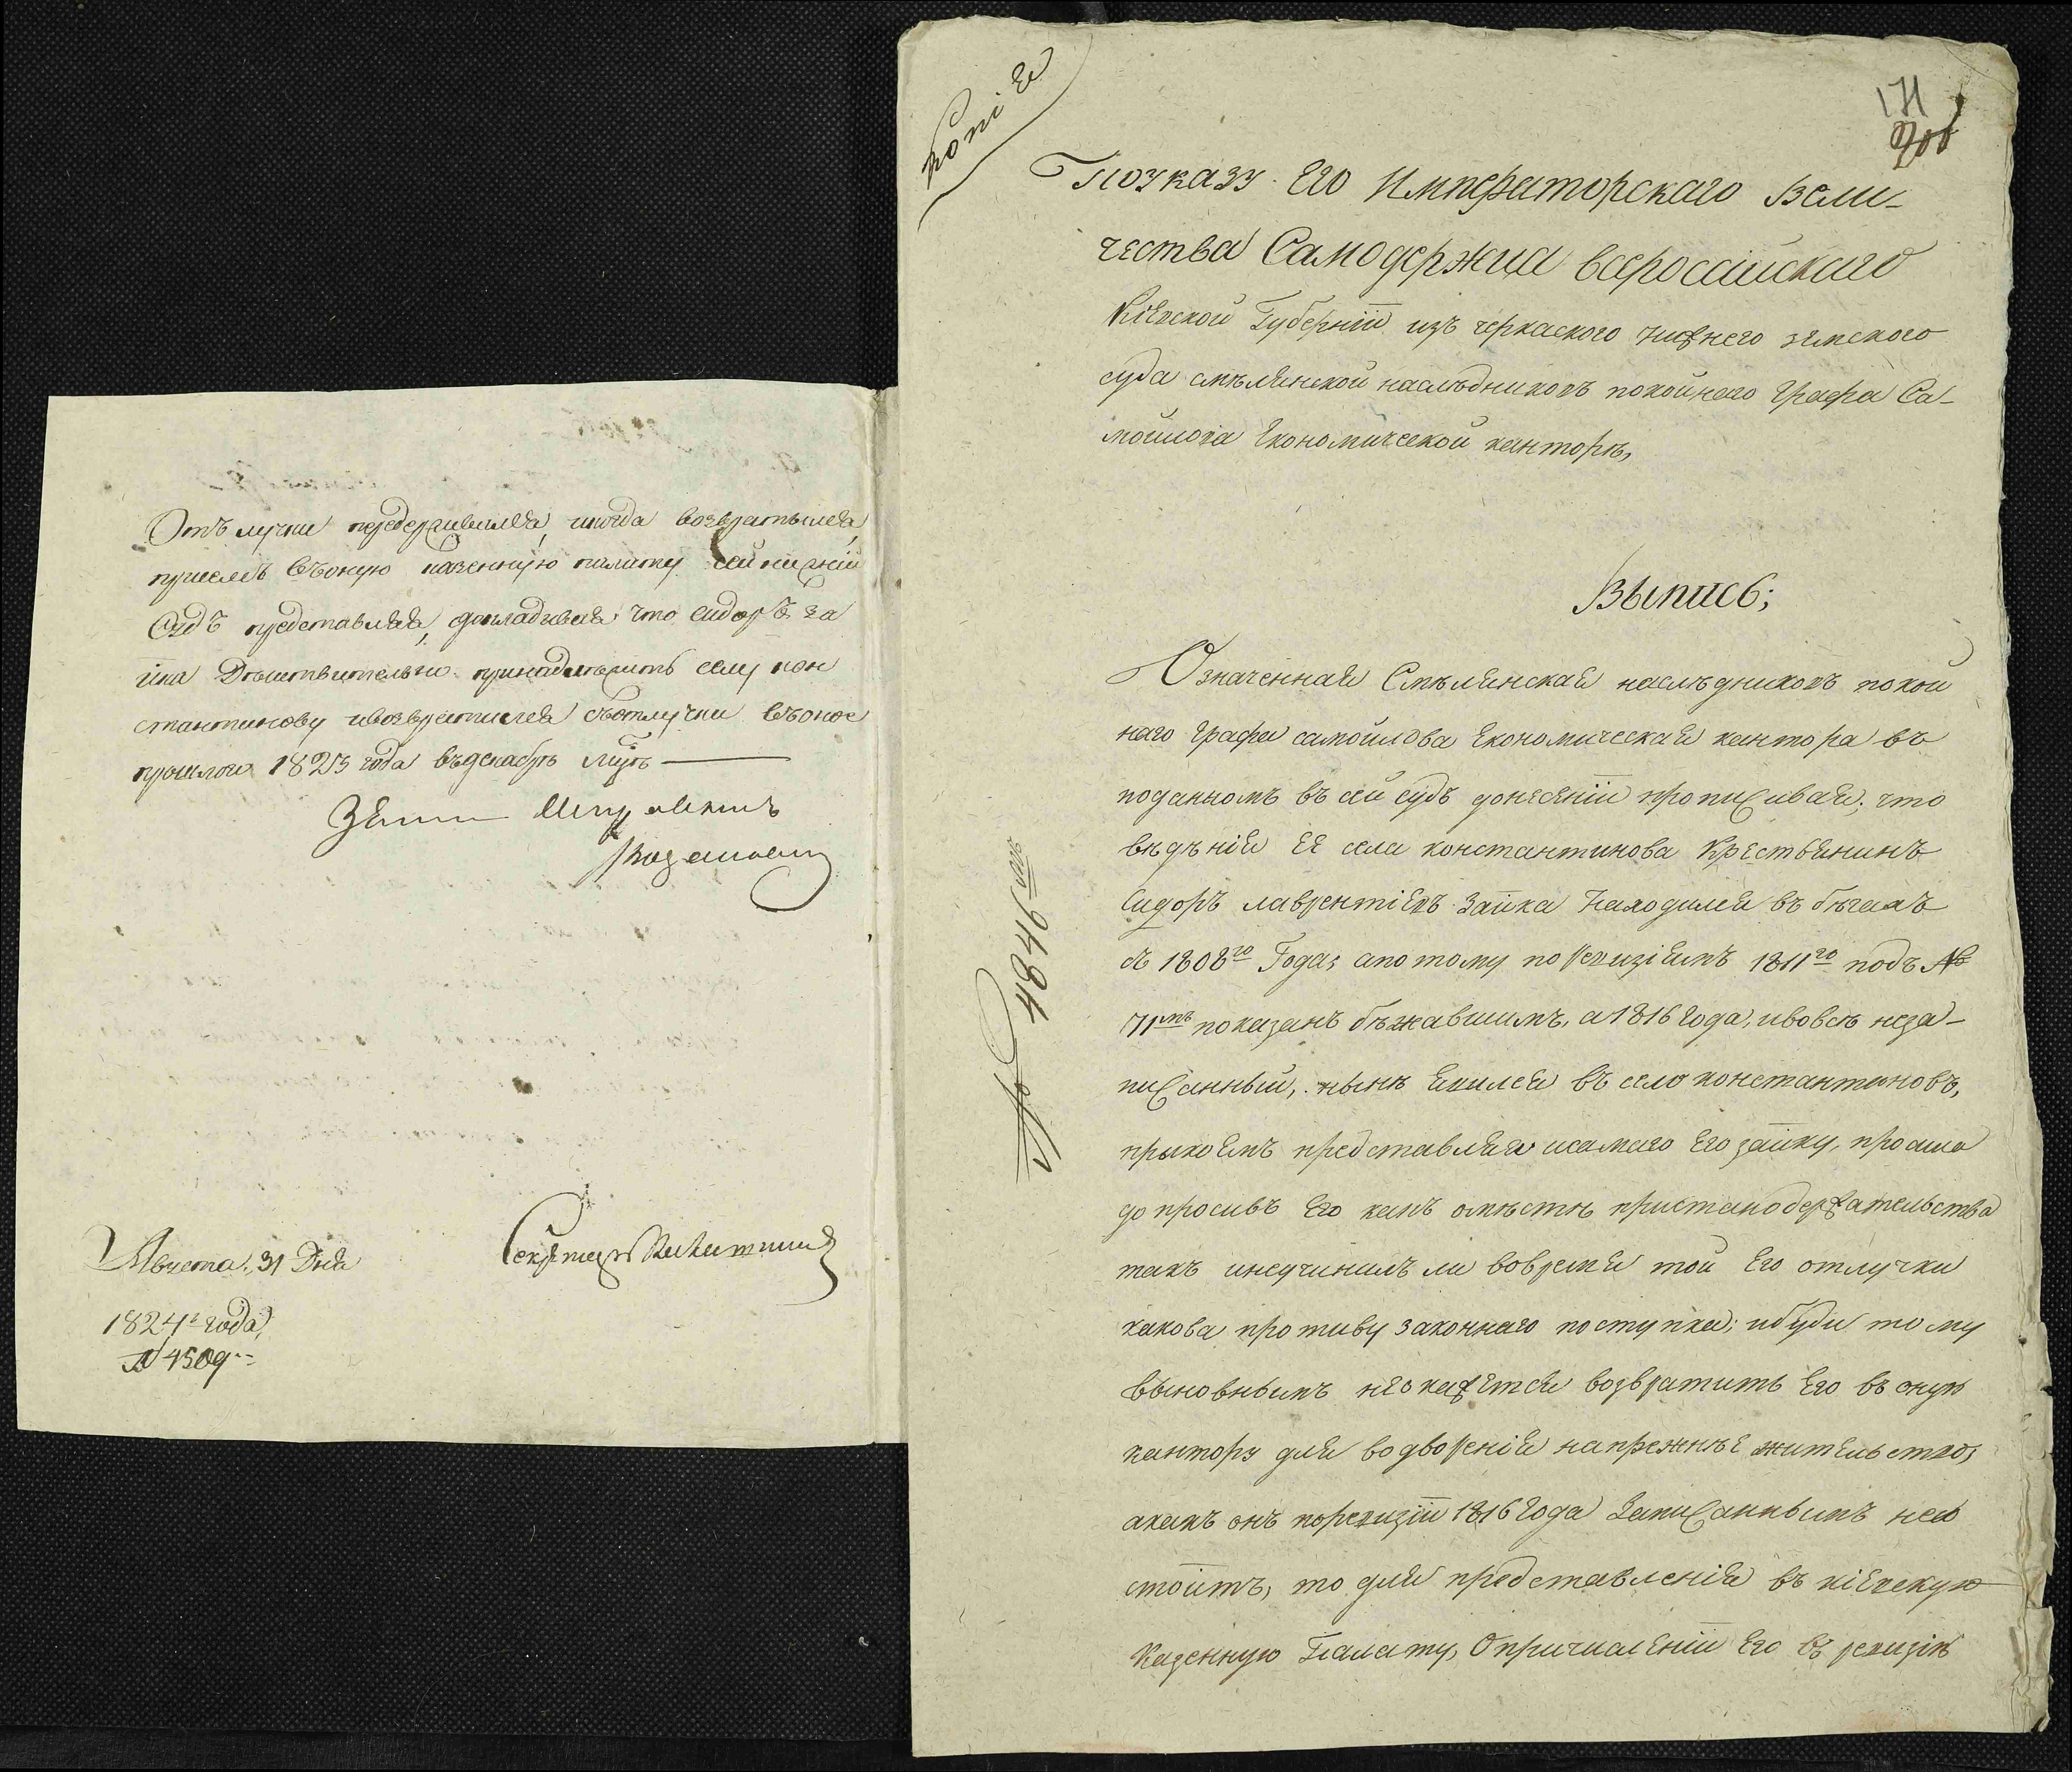 Отъ лучки передержывался, икогда возвратылся,
приелъ въоную казенную палату сей нижній
Судъ представляя, докладывая что сидоръ за
ика Действительно принадлежить селу кон
стантинову ивозвратился съотлучки въоное
прошлого 1823 года въдекабре мцѣ
Секретарь
Августа, 31 Дня
1824г года,
№ 4509
копіЯ
171
По указу Его Императорскаго Вели-
чества Самодержца всероссійскаго
Кіевской Губерніи изъ черкаского нижнего земского
суда смѣлянской наслѣдниковъ покойнаго Графа Са-
мойлова Економической канторѣ,
Выпись;
Означенная Смѣлянская наслѣдниковъ покой
наго графа самойлова Економическая кантора въ
поданномъ въ сей судъ донесеніи прописывая; что
вѣдѣнія ЕЯ села константинова Крестьянинъ
Сидоръ лаврентіевъ Заика Находился въ бѣгахъ
съ 1808го Года; апотому поревизіямъ 1811го подъ №
71мъ показанъ бѣжавшимъ, а 1816 года, ивовсѣ неза-
писанный, нынѣ явился въ село константиновъ,
прыкоемъ представляя исамаго Его заику, просила
допросивъ Его какъ омѣстѣ пристанодержательства
такъ инеучинилъ ли вовремя той Его отлучки
какова противу законнаго поступка; ибуди тому
выновнымъ неокажется возвратить Его въ оную
кантору для водворенія напрежнѣе жительство,
акакъ онъ поревизіи 1816 года Записаннымъ нео
стоитъ, то для представленія въ кіевскую
Казенную Палату, Опричисленіи Его въ ревизію
№ 4846